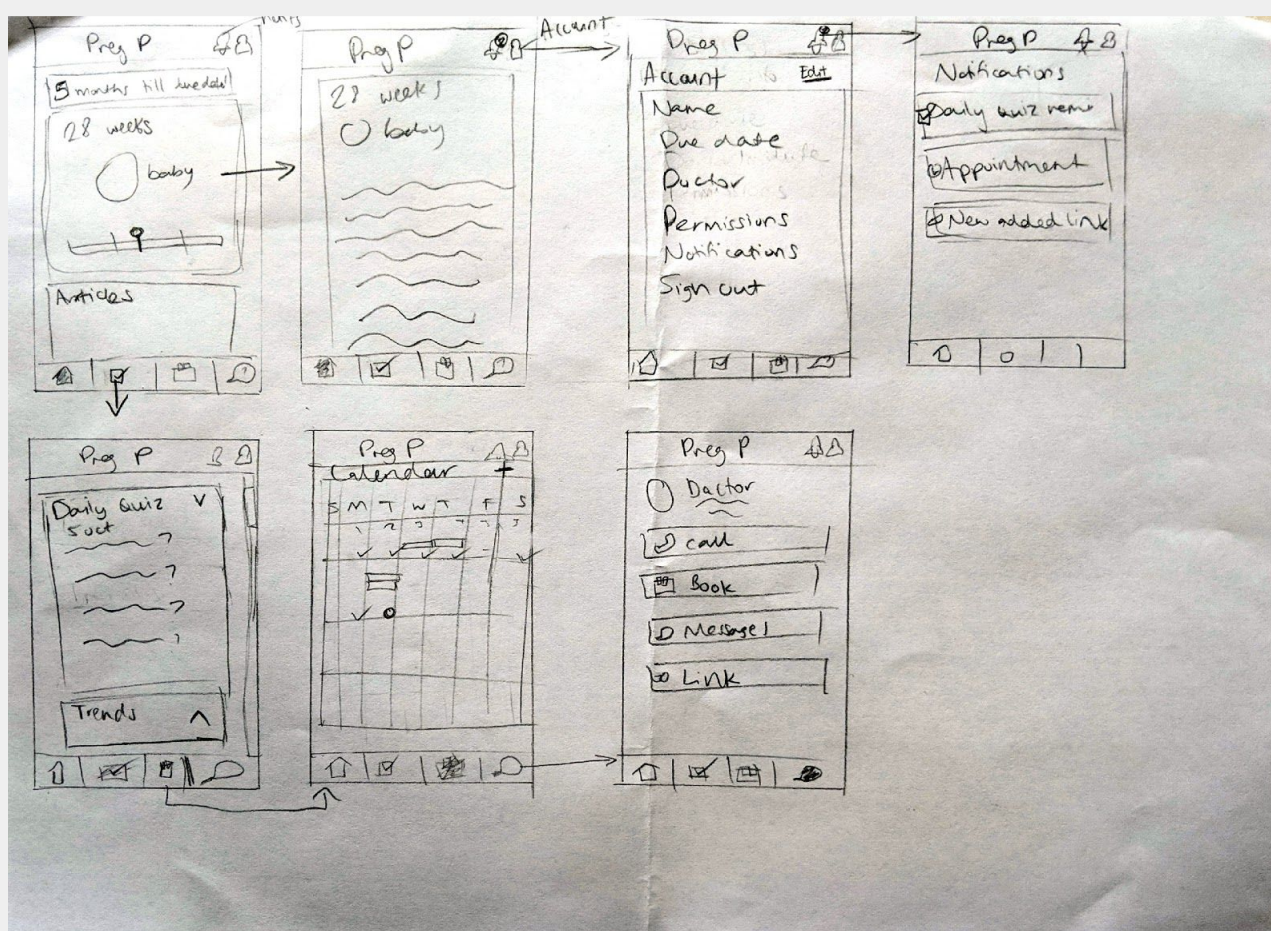 Preg P
5 months till due date!
28 weeks
baby
Articles
Preg P
28 weeks
baby
Account
Preg P
Account Edit
Name
Due date
Doctor
Permissions
Notifications
Sign out
Preg P
Notifications
Daily quiz remi
Appointment
New added link
Preg P
Daily Quiz
5 oct
?
?
?
?
Trends
Preg P
Calendar +
S M T W T F S
1 2 3
Preg P
Doctor
Call
Book
Messages
Link